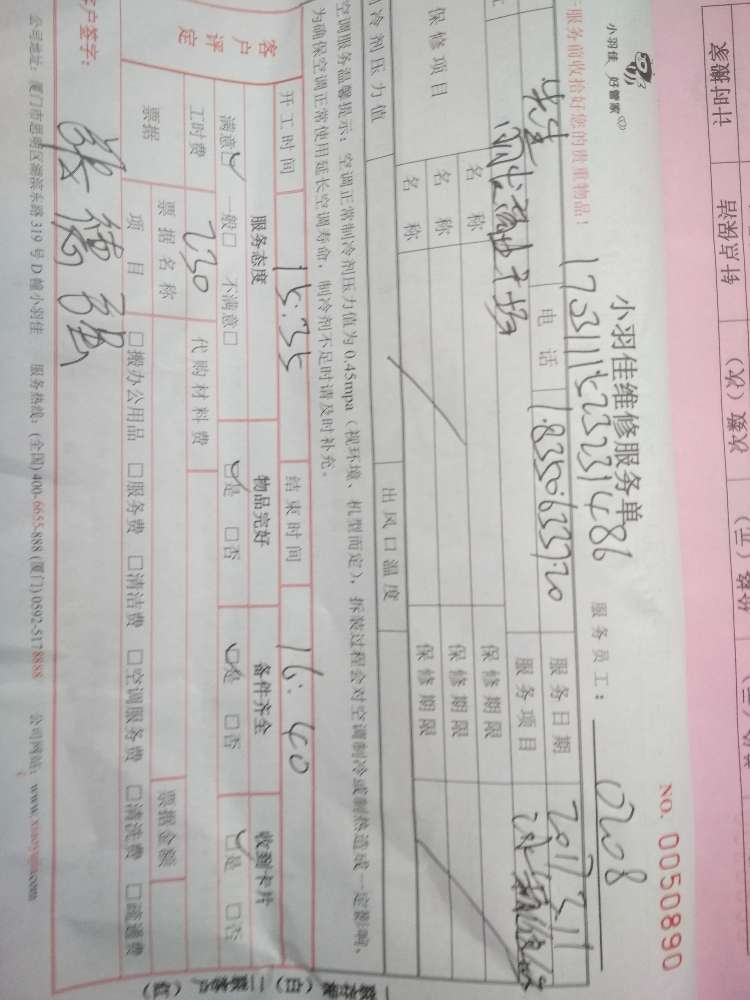 小羽佳 好管家
小羽佳维修服务单
NO. 0050890
服务前收拾好您的贵重物品！
服务员工： 0208
173111523231486
先生
电话
18350633720
服务日期
2017.3.11
服务项目
保修项目
名称
保修期限
名称
保修期限
名称
保修期限
制冷剂压力值
出风口温度
空调服务温馨提示：空调正常制冷剂压力值为0.45mpa（视环境、机型而定），拆装过程会对空调制冷或制热造成一定影响，
为确保空调正常使用延长空调寿命，制冷剂不足时请及时补充。
开工时间
15:35
结束时间
16:40
客户评定
服务态度
物品完好
备件齐全
收到卡片
满意□ 一般□ 不满意□
□是 □否
□是 □否
□是 □否
工时费
230
代购材料费
票据
票据名称
票据金额
项目
□搬办公用品 □服务费 □清洁费 □空调服务费 □清洗费 □疏通费
客户签字：
张德强
公司地址：厦门市思明区湖滨东路319号D幢小羽佳 服务热线：(全国)400-6655-888 (厦门)0592-5178888 公司网站：www.xiaoyujia.com
计时搬家
钟点保洁